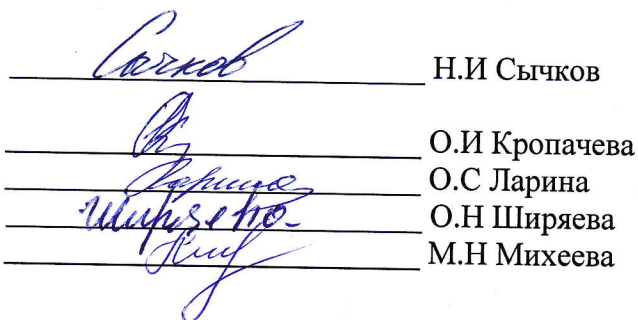 Сычков Н.И Сычков
О.И Кропачева
Ларина О.С Ларина
Ширяева О.Н Ширяева
М.Н Михеева